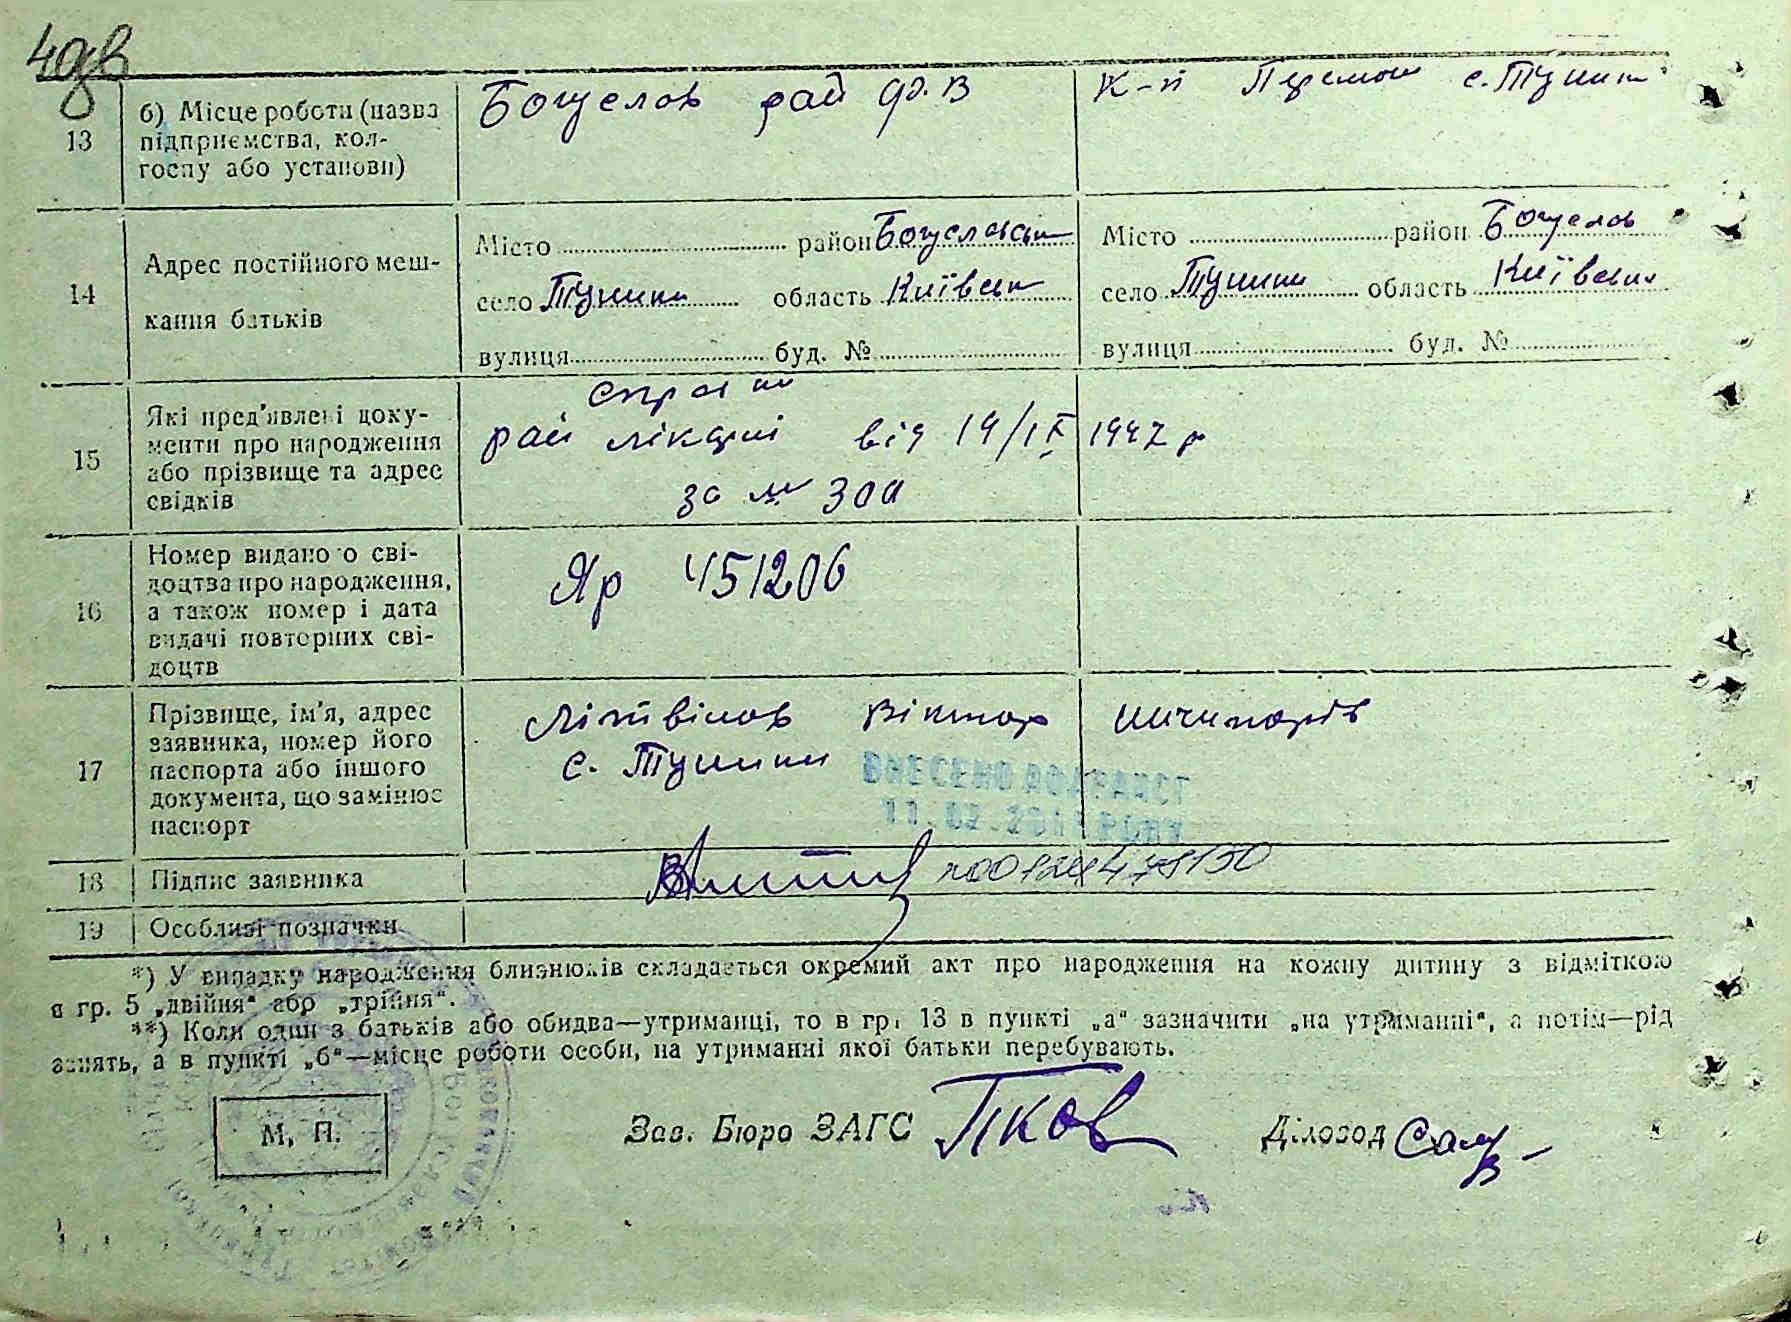 40в
13 б) Місце роботи (назва підприємства, кол-
госпу або установи)
Богуслов рай ф.в
К-п Перемог с. Туники
14 Адрес постійного меш-
кання батьків
Місто район Богуславськ
село Туники область Київськ
вулиця буд. №
Місто район Богуслов
село Туники область Київськ
вулиця буд. №
15 Які пред'явлені доку-
менти про народження
або прізвище та адрес
свідків
рай лікарні від 19/IX 1947 р
за №
16 Номер виданого сві-
доцтва про народження,
а також номер і дата
видачі повторних сві-
доцтв
Яр 451206
17 Прізвище, ім'я, адрес
заявника, номер його
паспорта або іншого
документа, що замінює
паспорт
Літвінов Віктор
с. Туники
ВНЕСЕНО ДО ДРАЦСГ
РОКУ
18 Підпис заявника
19 Особливі позначки
*) У випадку народження близнюків складається окремий акт про народження на кожну дитину з відміткою
в гр. 5 „двійня" або „трійня".
**) Коли один з батьків або обидва—утриманці, то в гр. 13 в пункті „а" зазначити „на утриманні", а потім—рід
занять, а в пункті „б"—місце роботи особи, на утриманні якої батьки перебувають.
М. П.
Зав. Бюро ЗАГС
Діловод